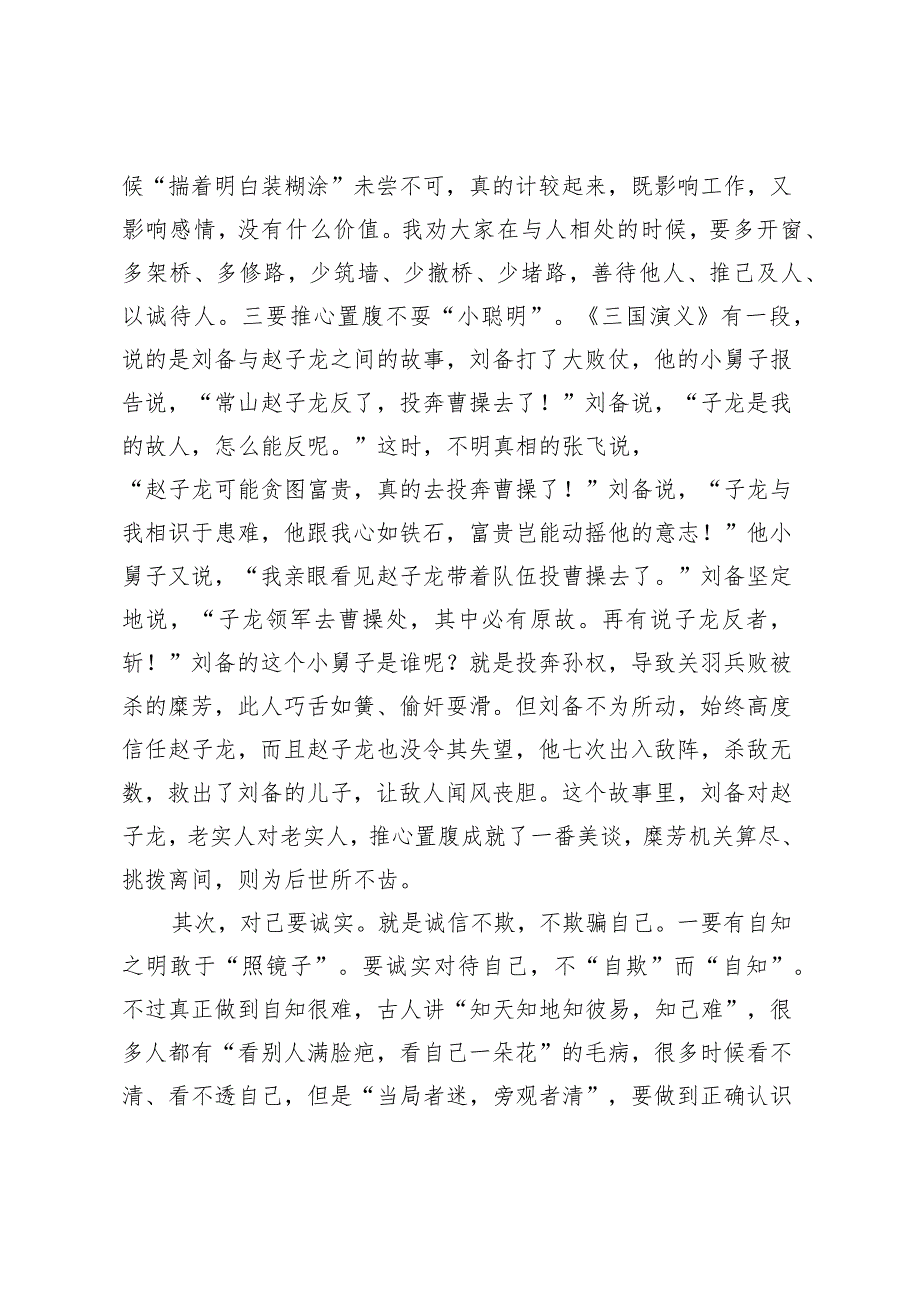 候“揣着明白装糊涂”未尝不可，真的计较起来，既影响工作，又
影响感情，没有什么价值。我劝大家在与人相处的时候，要多开窗、
多架桥、多修路，少筑墙、少撤桥、少堵路，善待他人、推己及人、
以诚待人。三要推心置腹不耍“小聪明”。《三国演义》有一段，
说的是刘备与赵子龙之间的故事，刘备打了大败仗，他的小舅子报
告说，“常山赵子龙反了，投奔曹操去了！”刘备说，“子龙是我
的故人，怎么能反呢。”这时，不明真相的张飞说，
“赵子龙可能贪图富贵，真的去投奔曹操了！”刘备说，“子龙与
我相识于患难，他跟我心如铁石，富贵岂能动摇他的意志！”他小
舅子又说，“我亲眼看见赵子龙带着队伍投曹操去了。”刘备坚定
地说，“子龙领军去曹操处，其中必有原故。再有说子龙反者，
斩！”刘备的这个小舅子是谁呢？就是投奔孙权，导致关羽兵败被
杀的糜芳，此人巧舌如簧、偷奸耍滑。但刘备不为所动，始终高度
信任赵子龙，而且赵子龙也没令其失望，他七次出入敌阵，杀敌无
数，救出了刘备的儿子，让敌人闻风丧胆。这个故事里，刘备对赵
子龙，老实人对老实人，推心置腹成就了一番美谈，糜芳机关算尽、
挑拨离间，则为后世所不齿。
其次，对己要诚实。就是诚信不欺，不欺骗自己。一要有自知
之明敢于“照镜子”。要诚实对待自己，不“自欺”而“自知”。
不过真正做到自知很难，古人讲“知天知地知彼易，知己难”，很
多人都有“看别人满脸疤，看自己一朵花”的毛病，很多时候看不
清、看不透自己，但是“当局者迷，旁观者清”，要做到正确认识